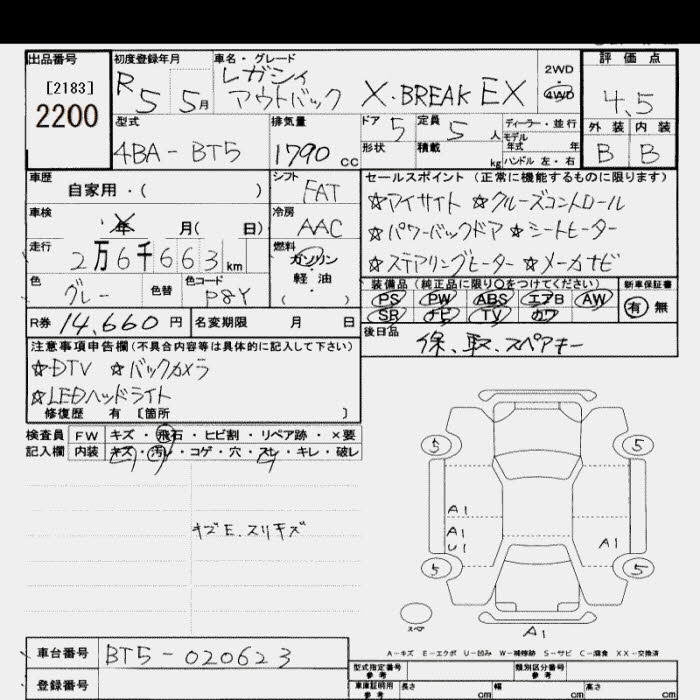 出品番号
[2183]
2200
初度登録年月
R5 5月
車名・グレード
レガシィ
アウトバック X・BREAK EX
2WD
4WD
評価点
4.5
外装 内装
B B
型式
4BA-BT5
排気量
1790 cc
ドア 5
定員 5 人
形状
積載 kg
ディーラー・並行
モデル
年式 年
ハンドル 左・右
車歴
自家用・( )
シフト
FAT
車検
年 月( 日)
冷房
AAC
走行
2万6千663km
燃料
ガソリン
軽油
( )
色
グレー
色替
色コード
P8Y
R券 14,660 円
名変期限 月 日
セールスポイント(正常に機能するものに限ります)
☆アイサイト ☆クルーズコントロール
☆パワーバックドア ☆シートヒーター
☆ステアリングヒーター ☆メーカナビ
装備品(純正品に限り○をつけてください)
PS PW ABS エアB AW
SR ナビ TV カワ
新車保証書
有 無
後日品
保、取、スペアキー
注意事項申告欄(不具合内容等は具体的に記入して下さい)
☆DTV ☆バックカメラ
☆LEDヘッドライト
修復歴 有 〔箇所 〕
検査員
記入欄
FW キズ・飛石・ヒビ割・リペア跡・×要
内装 キズ・汚レ・コゲ・穴・スレ・キレ・破レ
キズE.スリキズ
5 5
A1
A1
U1
A1
5 5
スペア
A1
A-キズ E-エクボ U-凹み W-補修跡 S-サビ C-腐食 XX-交換済
車台番号 BT5-020623
登録番号
型式指定番号
参考
類別区分番号
参考
車庫証明用
参考
長さ cm 幅 cm 高さ cm